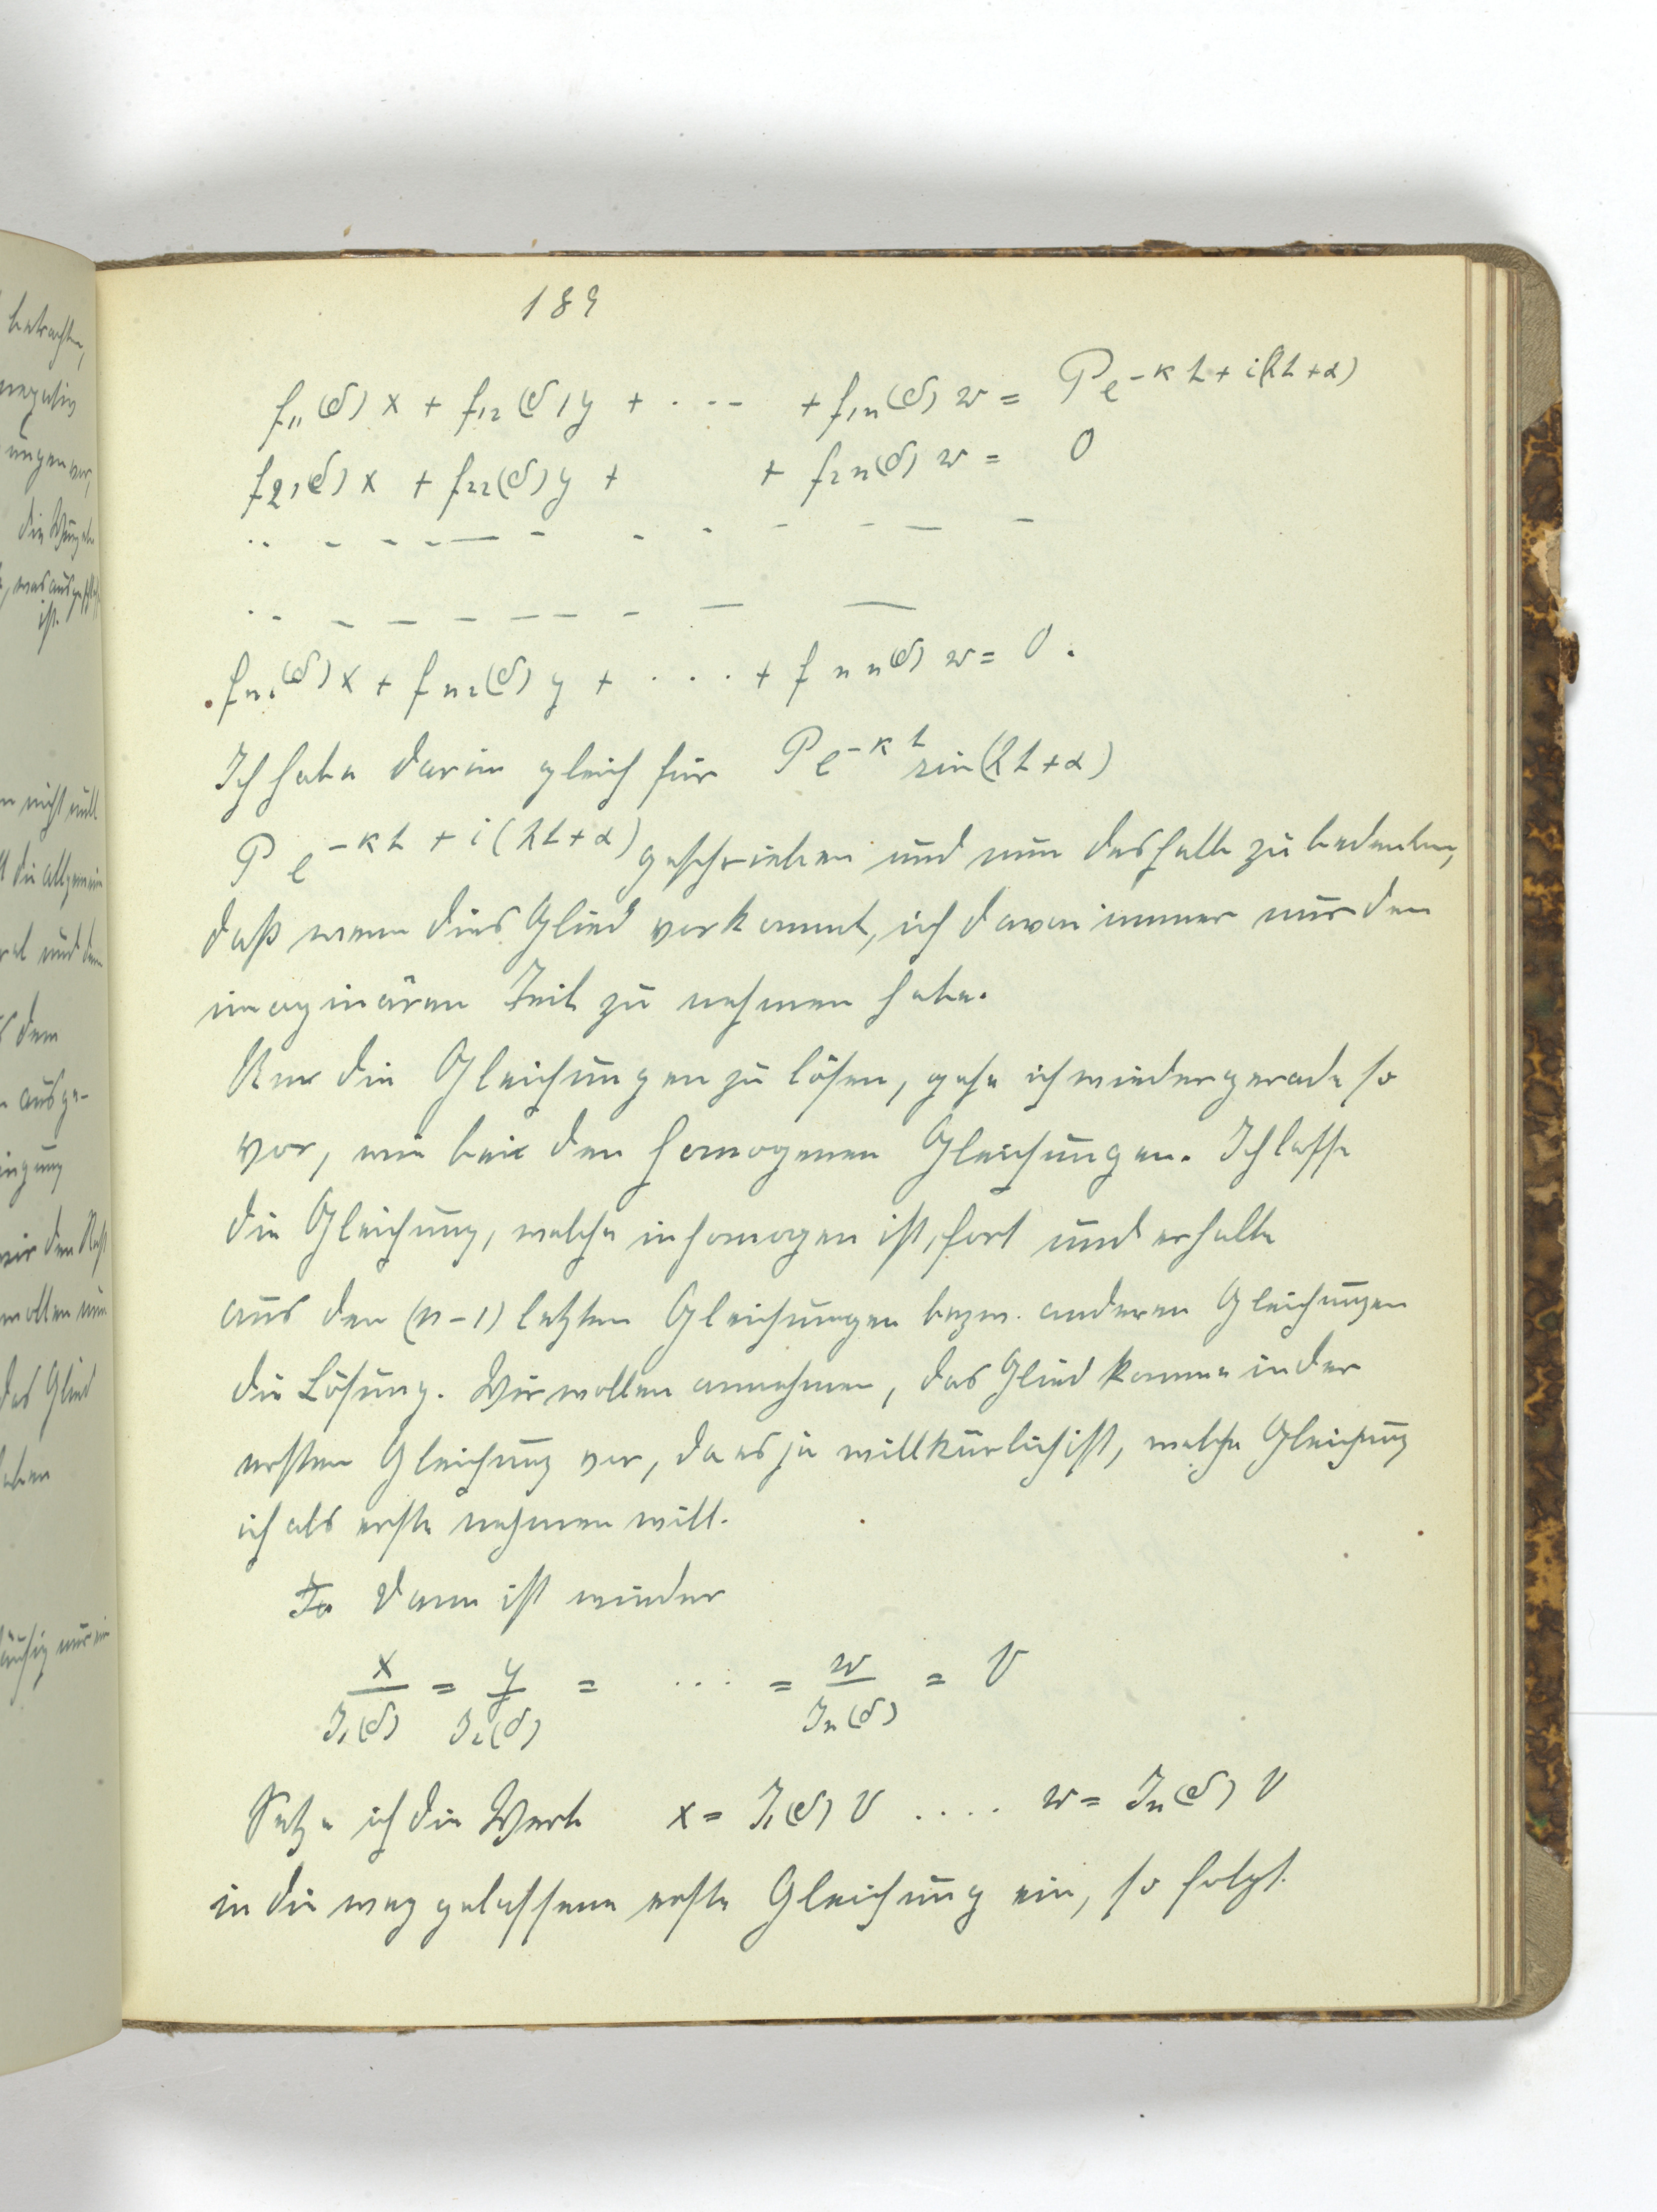 189
f₁₁(δ) x + f₁₂(δ) y + · · - - + f₁ₙ(δ) w = P e^{-κt + i(λt+α)}
f₂₁(δ) x + f₂₂(δ) y + + f₂ₙ(δ) w = 0
fₙ₁(δ) x + fₙ₂(δ) y + · · · · + fₙₙ(δ) w = 0.
Ich habe darin gleich für P e^{-κt} sin(λt+α)
P e^{-κt + i(λt+α)} geschrieben und nun deshalb zu bedenken,
daß wenn dies Glied vorkommt, ich davon immer nur den
imaginären Teil zu nehmen habe.
Um die Gleichungen zu lösen, gehe ich wieder gerade so
vor, wie bei den homogenen Gleichungen. Ich lasse
die Gleichung, welche inhomogen ist, fort und erhalte
aus den (n-1) letzten Gleichungen bezw. anderen Gleichungen
die Lösung. Wir wollen annehmen, das Glied komme in der
ersten Gleichung vor, da es ja willkürlich ist, welche Gleichung
ich als erste nehmen will.
Dann ist wieder
x/J₁(δ) = y/J₂(δ) = · · · · = w/Jₙ(δ) = V
Setze ich die Werte x = J₁(δ) V . . . . w = Jₙ(δ) V
in die weggelassene erste Gleichung ein, so folgt.
betrachten,
negativ
ungen vor,
ist.
n nicht null
die allgemein
und dem
dem
ausge-
ingung
wir den Rest
wollen nun
das Glied
aben
äufig nur ein